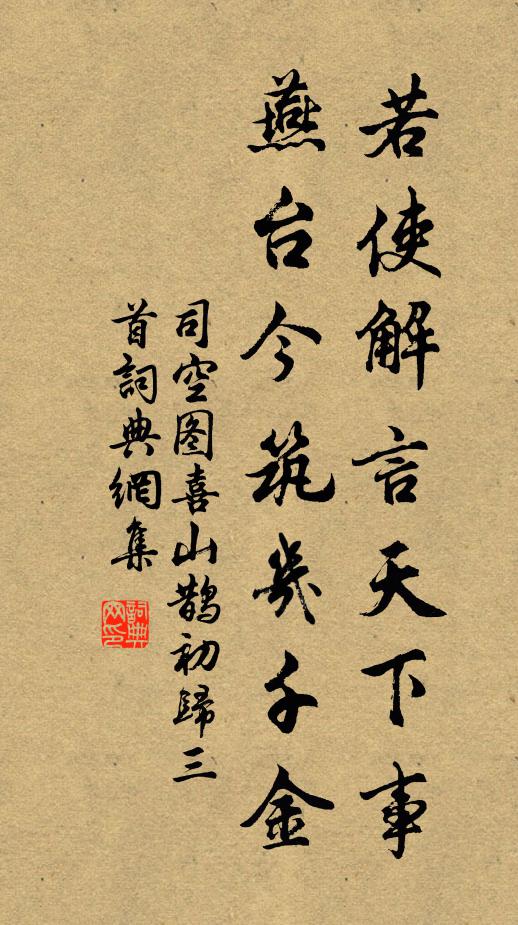 若使解言天下事
燕台今筑幾千金
司空图喜山鵲初歸三
首詞典網集
詞典
网印